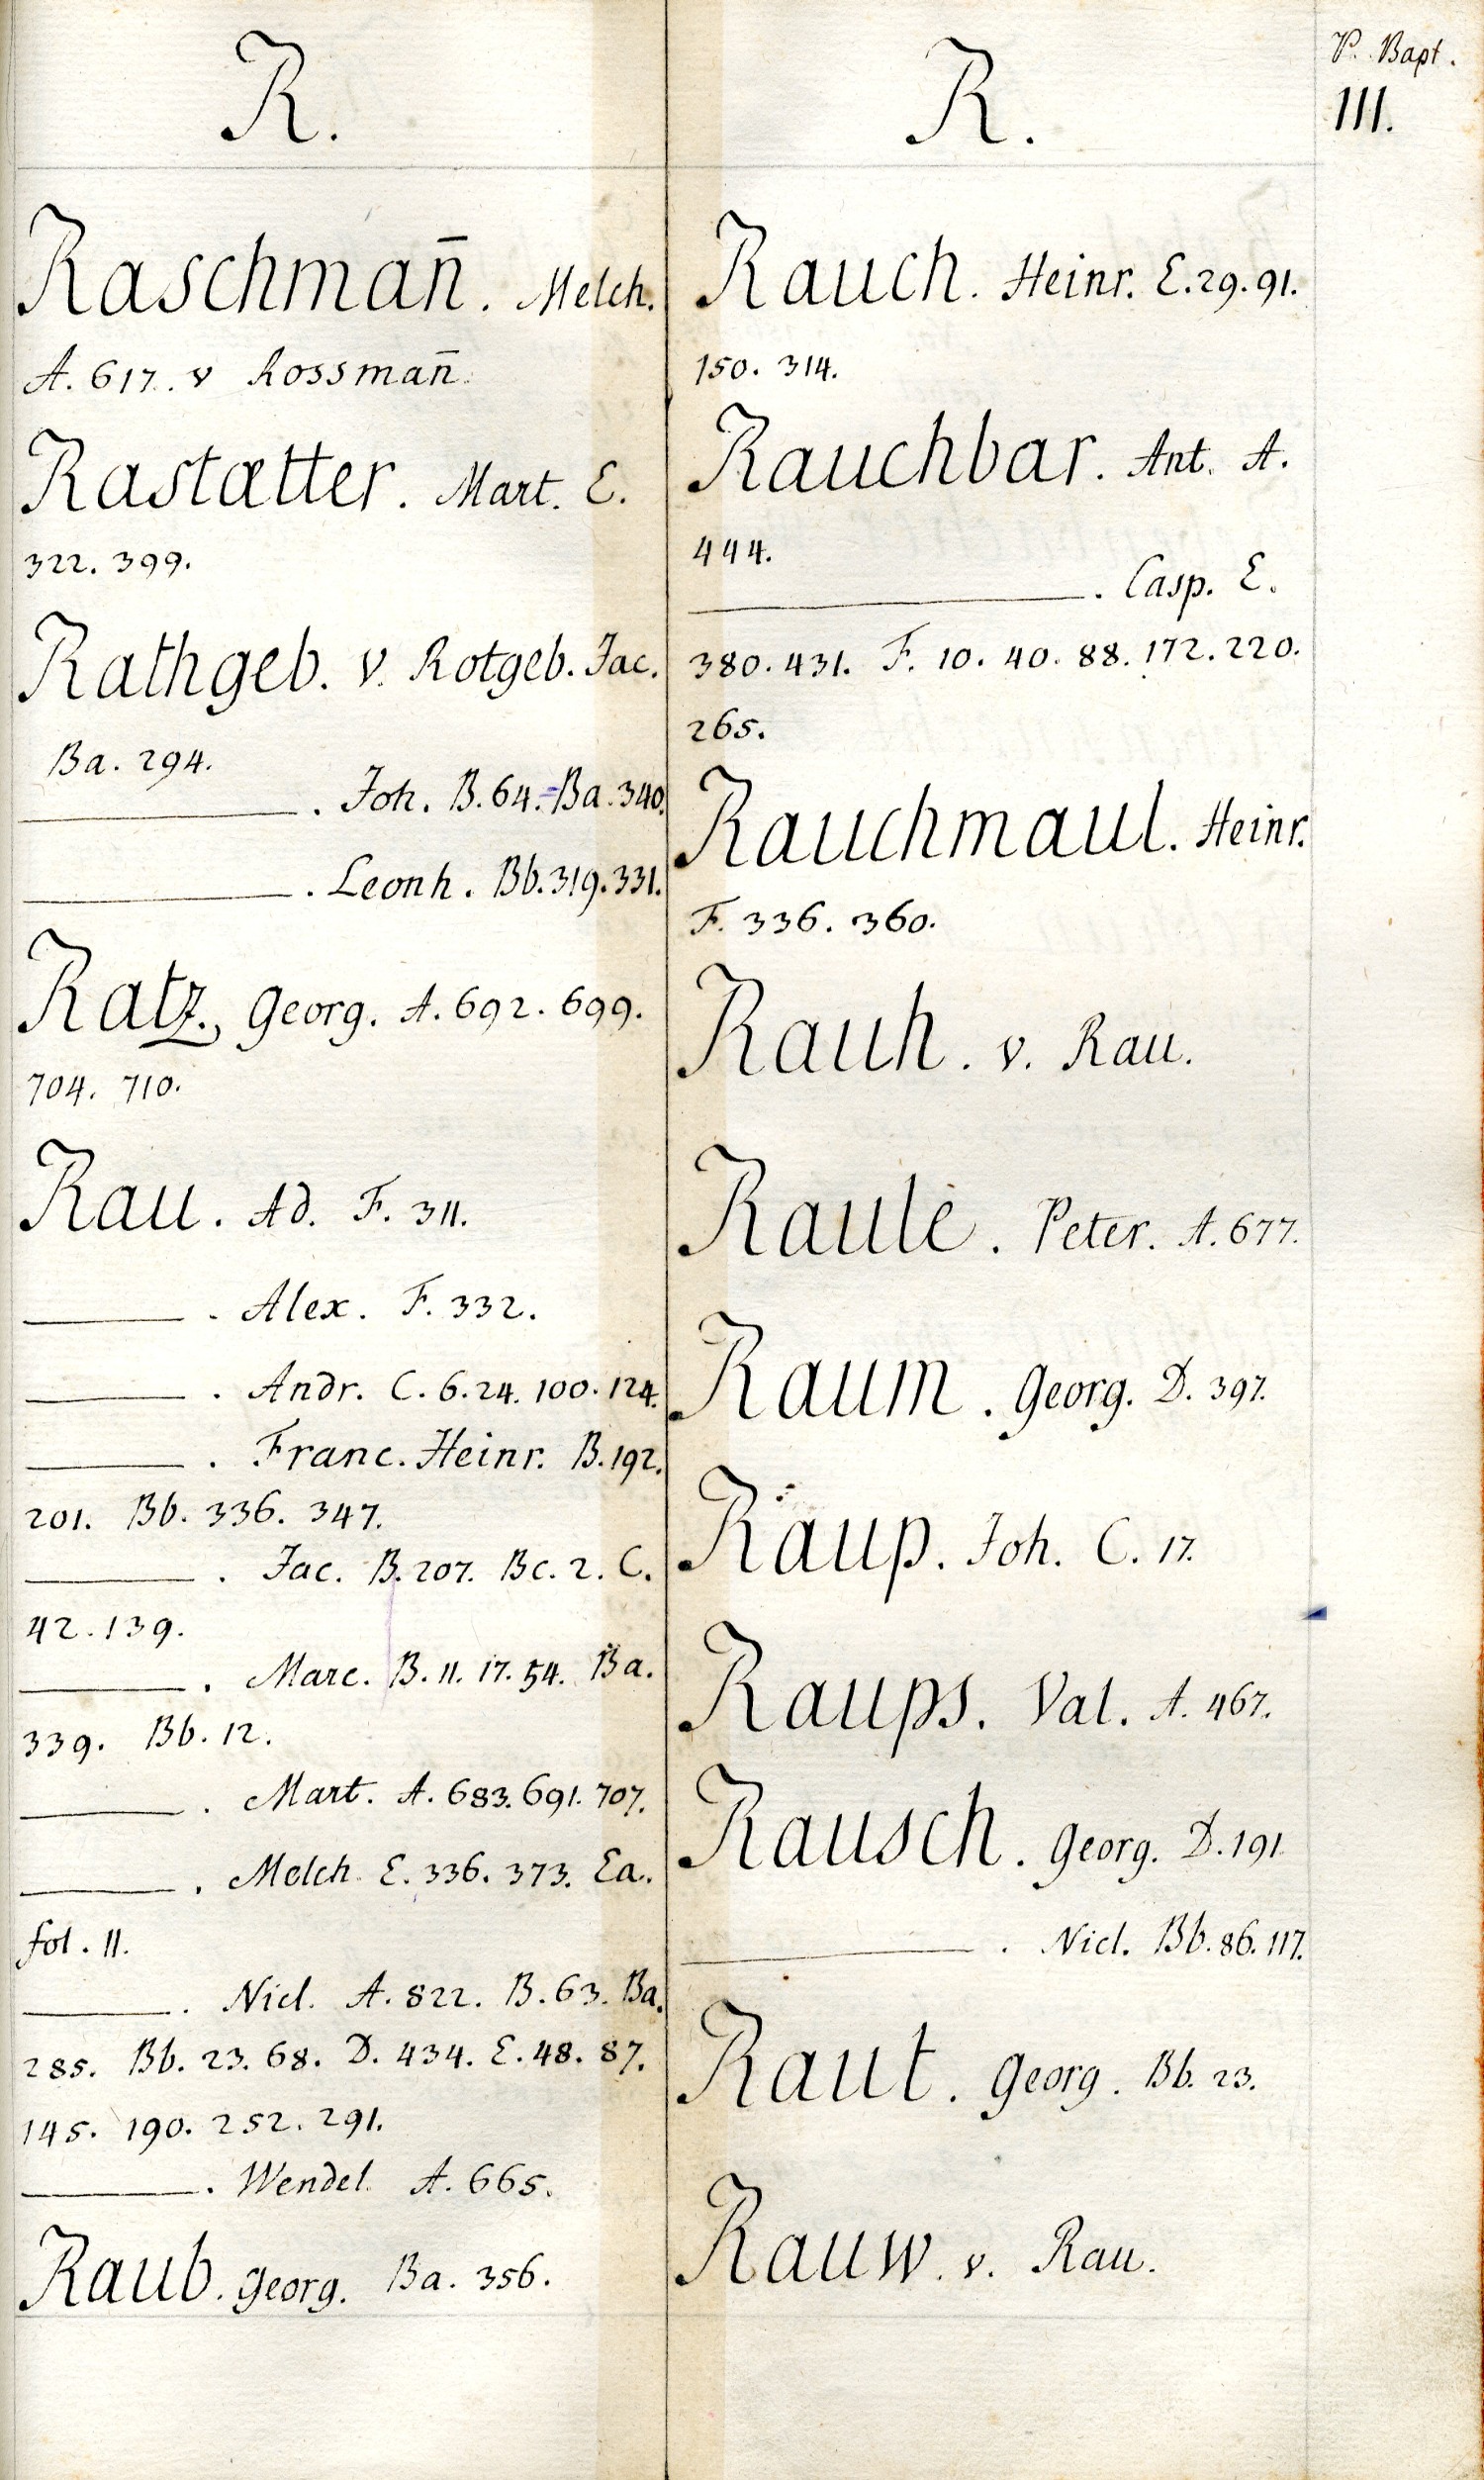 R.
Raschman̄. Melch.
A. 617. v Rossman̄.
Rastætter. Mart. E.
322. 399.
Rathgeb. v. Rotgeb. Jac.
Ba. 294.
———. Joh. B. 64. Ba. 340.
———. Leonh. Bb. 319. 331.
Ratz., Georg. A. 692. 699.
704. 710.
Rau. Ad. F. 311.
———. Alex. F. 332.
———. Andr. C. 6. 24. 100. 124.
———. Franc. Heinr. B. 192.
201. Bb. 336. 347.
———. Jac. B. 207. Bc. 2. C.
42. 139.
———. Marc. B. 11. 17. 54. Ba.
339. Bb. 12.
———. Mart. A. 683. 691. 707.
———. Melch. E. 336. 373. Ea.
fol. 11.
———. Nicl. A. 822. B. 63. Ba.
285. Bb. 23. 68. D. 434. E. 48. 87.
145. 190. 252. 291.
———. Wendel. A. 665.
Raub. Georg. Ba. 356.
R.
Rauch. Heinr. E. 29. 91.
150. 314.
Rauchbar. Ant. A.
444.
———. Casp. E.
380. 431. F. 10. 40. 88. 172. 220.
265.
Rauchmaul. Heinr.
F. 336. 360.
Rauh. v. Rau.
Raule. Peter. A. 677.
Raum. Georg. D. 397.
Raup. Joh. C. 17.
Raups. Val. A. 467.
Rausch. Georg. D. 191
———. Nicl. Bb. 86. 117.
Raut. Georg. Bb. 23.
Rauw. v. Rau.
P. Bapt.
III.